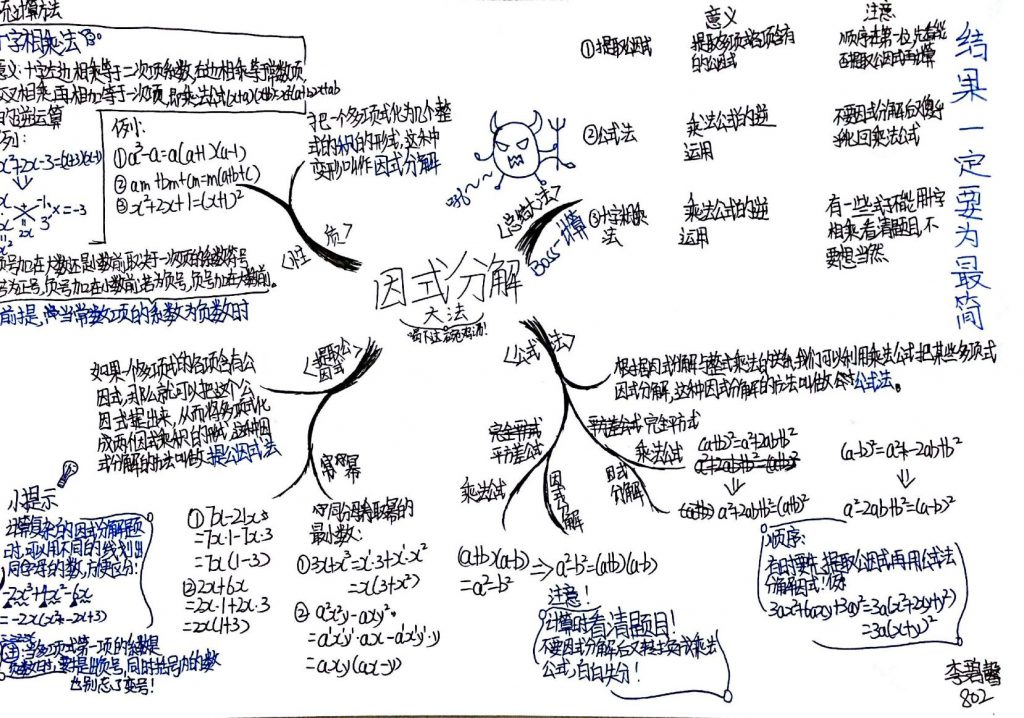 充计算方法
十字相乘法
意义:十字左边相乘等于二次项系数,右边相乘等于常数项,
交叉相乘再相加等于一次项,即乘法公式(x+a)(x+b)=x²+(a+b)x+ab
的逆运算
例:
x²+2x-3=(x+3)(x-1)
例:
①a³-a=a(a+1)(a-1)
②am+bm+cm=m(a+b+c)
③x²+2x+1=(x+1)²
负号加在大数还是小数前,取决于一次项的系数符号
若为正号,负号加在小数前,若为负号,负号加在大数前。
前提,当常数项的系数为负数时
把一个多项式化为几个整
式的积的形式,这种
变形叫作因式分解
<性质>
吼~~
<总结大法>
Boss计算
意义
注意
①提取公因式
提取多项式各项含有
的公因式
顺序在第一位,先看能
否提取公因式再计算
②公式法
乘法公式的逆
运用
不要因式分解后又傻乎
乎化回乘法公式
③十字相乘
法
乘法公式的逆
运用
有一些式子不能用十字
相乘,看清题目,不
要想当然
结果一定要为最简
因式分解
大法
<提取公
因式>
如果一个多项式的各项含有公
因式,那么就可以把这个公
因式提出来,从而将多项式化
成两个因式乘积的形式,这种因
式分解的方法叫做提公因式法
幂
①7x-21x
=7x·1-7x·3
=7x(1-3)
②2x+6x
=2x·1+2x·3
=2x(1+3)
同分母取幂的
最小数:
①3x+x³=x¹·3+x¹·x²
=x(3+x²)
②a²x²y-axy²
=a¹x¹y¹·ax-a¹x¹y¹·y
=axy(ax-y)
小提示
计算复杂的因式分解题
时,可以用不同的线划出
同字母的数,方便区分!
-2x³+4x²-6x
=-2x(x²-2x+3)
注:当多项式第一项的系数是
负数时,要提出负号,同时括号内的数
也别忘了变号!
<公式法>
根据因式分解与整式乘法的关系,我们可以利用乘法公式把某些多项式
因式分解,这种因式分解的方法叫做公式法。
完全平方式
平方差公式
乘法公式
因式分解
(a+b)(a-b)
=a²-b²
⇒a²-b²=(a+b)(a-b)
平方差公式 完全平方式
乘法公式
因式
分解
(a+b)²=a²+2ab+b²
a²+2ab+b²=(a+b)²
a²+2ab+b²=(a+b)²
(a-b)²=a²-2ab+b²
a²-2ab+b²=(a-b)²
注意!
计算时看清题目!
不要因式分解后又转变成乘法
公式,白白失分!
顺序:
有时要先提取公因式再用公式法
分解因式!例:
3ax²+6axy+3ay²=3a(x²+2xy+y²)
=3a(x+y)²
李碧馨
802